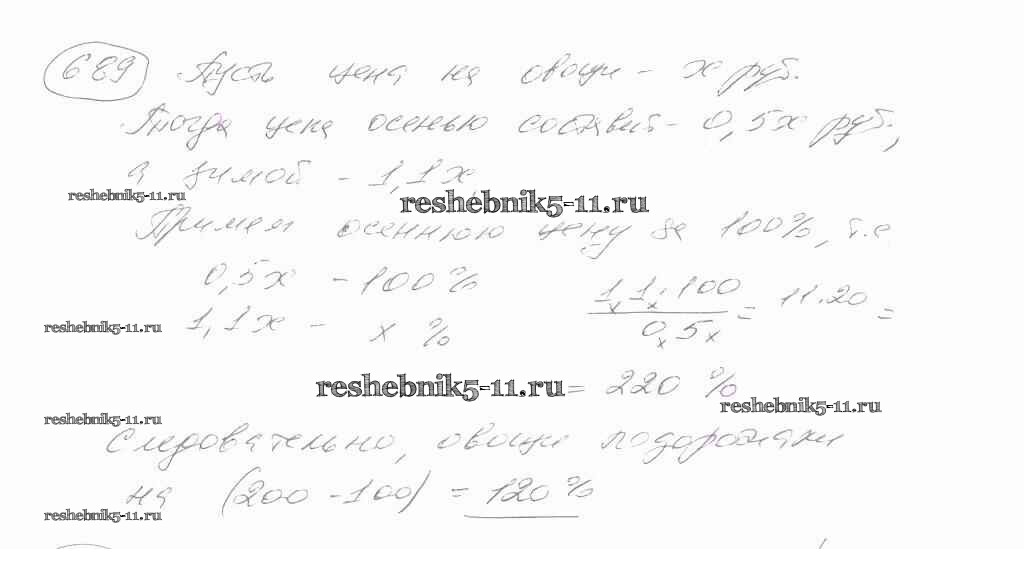 689 Пусть цена на овощи - x руб.
Тогда цена осенью составит - 0,5x руб.,
а зимой - 1,1x
reshebnik5-11.ru reshebnik5-11.ru
Примем осеннюю цену за 100%, т.е
0,5x - 100%
1,1x - x %
1,1 · 100 / 0,5 = 11·20 =
reshebnik5-11.ru
reshebnik5-11.ru = 220 %
reshebnik5-11.ru
reshebnik5-11.ru
Следовательно, овощи подорожали
на (200 - 100) = 120%
reshebnik5-11.ru